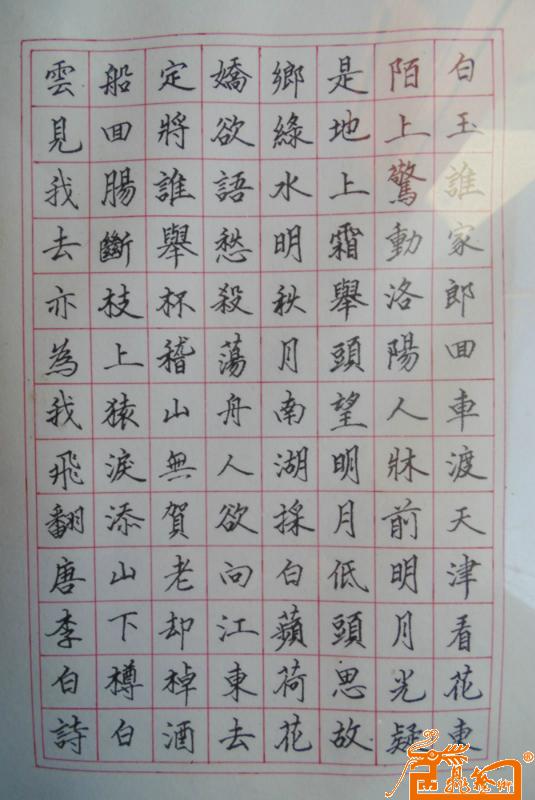 白玉誰家郎回車渡天津看花東
陌上驚動洛陽人牀前明月光疑
是地上霜舉頭望明月低頭思故
鄉綠水明秋月南湖採白蘋荷花
嬌欲語愁殺蕩舟人欲向江東去
定將誰舉杯稽山無賀老却棹酒
船回腸斷枝上猿淚添山下樽白
雲見我去亦為我飛翻唐李白詩